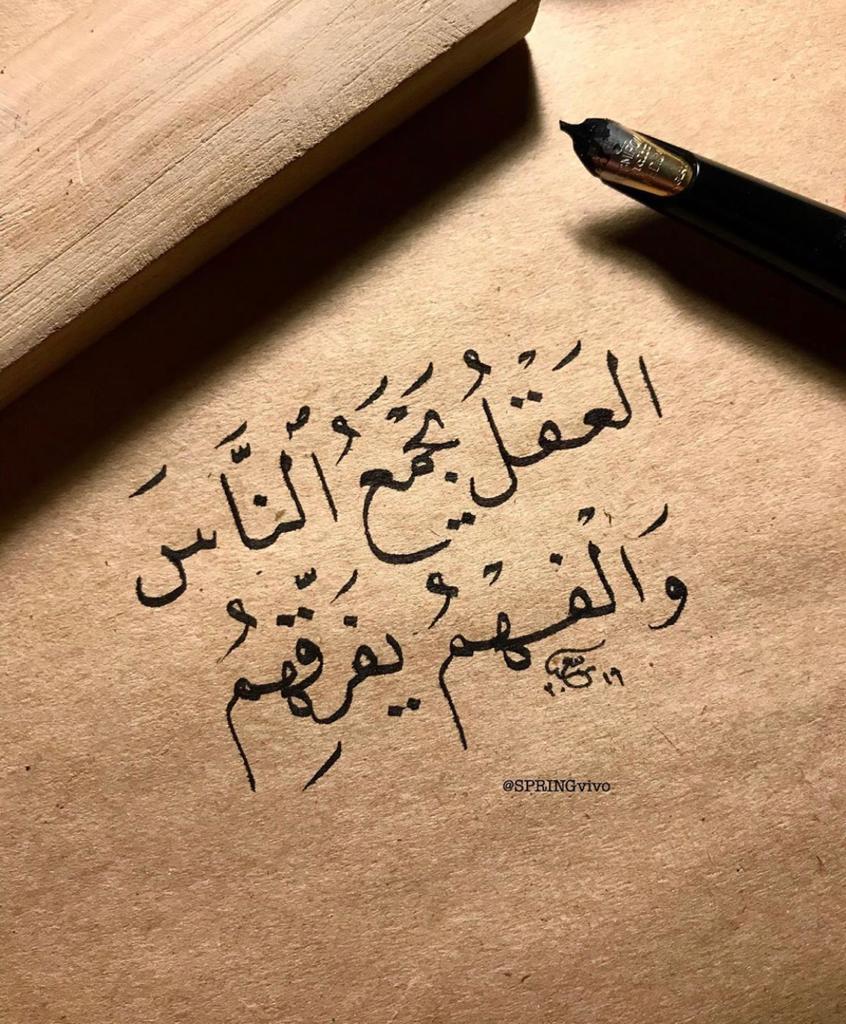 العَقْلُ يَجْمَعُ ٱلنَّاسَ
وَالْفَهْمُ يفَرِّقُهُمُ
@SPRINGvivo